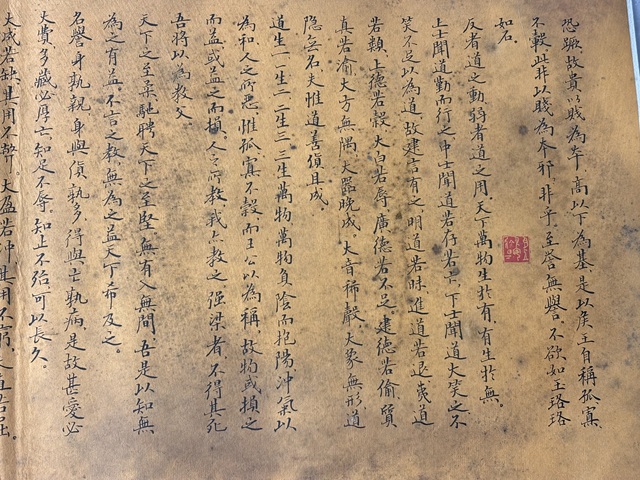 恐蹶故貴以賤為本高以下為基是以侯王自稱孤寡
不轂此非以賤為本邪非乎至譽無譽不欲如玉珞珞
如石
反者道之動弱者道之用天下萬物生於有有生於無
上士聞道勤而行之中士聞道若存若亡下士聞道大笑之不
笑不足以為道故建言有之明道若昧進道若退夷道
若纇上德若谷大白若辱廣德若不足建德若偷質
真若渝大方無隅大器晚成大音稀聲大象無形道
隱無名夫惟道善貸且成
道生一一生二二生三三生萬物萬物負陰而抱陽沖氣以
為和人之所惡惟孤寡不轂而王公以為稱故物或損之
而益或益之而損人之所教我亦教之强梁者不得其死
吾將以為教父
天下之至柔馳騁天下之至堅無有入無間吾是以知無
為之有益不言之教無為之益天下希及之
名譽身孰親身與貨孰多得與亡孰病是故甚愛必
大費多藏必厚亡知足不辱知止不殆可以長久
大成若缺其用不弊大盈若沖其用不窮大直若屈